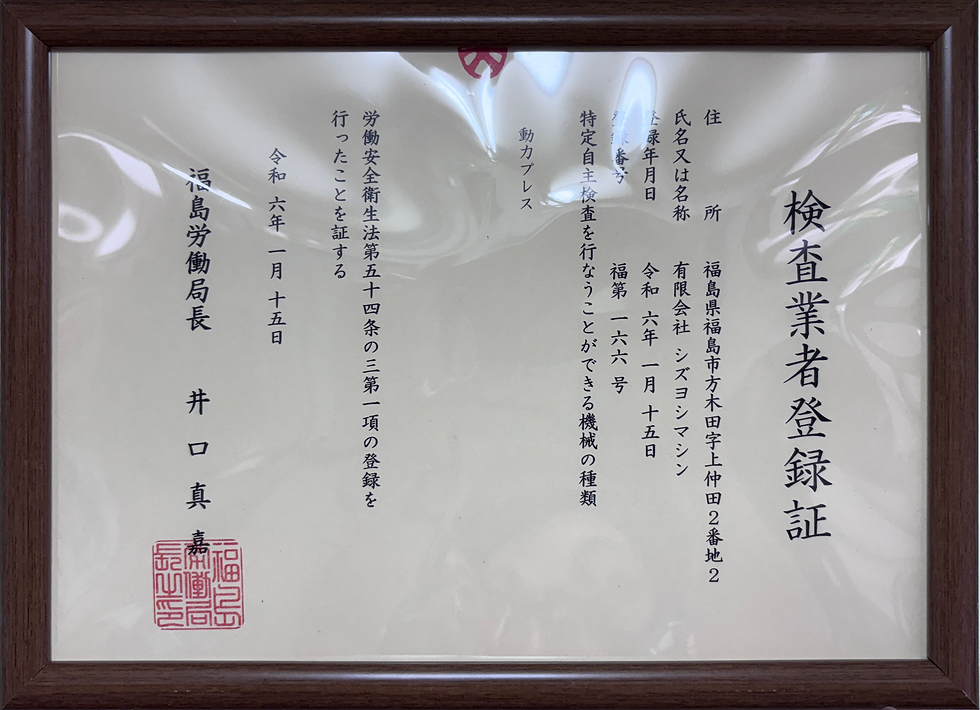 検査業者登録証
住所 福島県福島市方木田字上仲田２番地２
氏名又は名称 有限会社 シズヨシマシン
登録年月日 令和 六年 一月 十五日
登録番号 福第 一六六 号
特定自主検査を行なうことができる機械の種類
動力プレス
労働安全衛生法第五十四条の三第一項の登録を
行ったことを証する
令和 六年 一月 十五日
福島労働局長 井口真嘉
福島労働局長之印